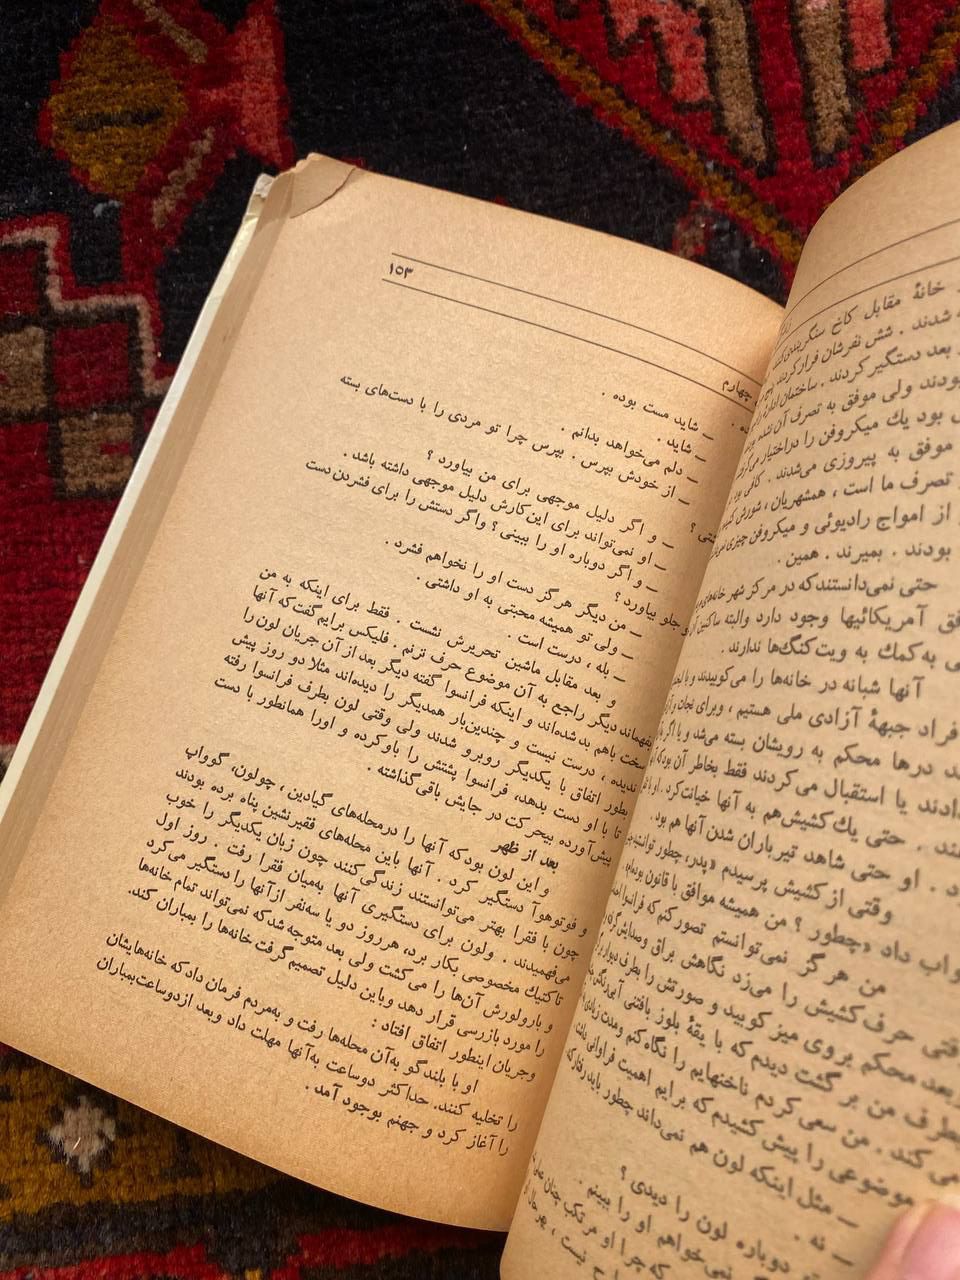 خانهٔ مقابل کاخ سنگربندی کنند
شدند . شش نفرشان فرار کردند
بعد دستگیر کردند . ساختمان اداره
بودند ولی موفق به تصرف آن نشده
بود یك میکروفن را در اختیار می‌گرفتند
موفق به پیروزی می‌شدند . کافی بود
تصرف ما است ، همشهریان ، شورش کنید
از امواج رادیوئی و میکروفن چیزی
بودند . بمیرند . همین .
حتی نمی‌دانستند که در مرکز شهر خانه‌های
آمریکائیها وجود دارد والبته ساکنین آن
به کمك به ویت‌کنگ‌ها ندارند .
آنها شبانه در خانه‌ها را می‌کوبیدند و با
افراد جبههٔ آزادی ملی هستیم ، وبرای نجات
درها محکم به رویشان بسته می‌شد و یا اگر
یا استقبال می‌کردند فقط بخاطر آن بود که
حتی یك کشیش هم به آنها خیانت کرد . او با
او حتی شاهد تیرباران شدن آنها هم بود .
وقتی از کشیش پرسیدم «پدر، چطور توانستید
داد «چطور ؟ من همیشه موافق با قانون بوده‌ام»
من هر گز نمی‌توانستم تصور کنم که فرانسوا
حرف کشیش را می‌زد نگاهش براق وصدایش
بعد محکم بروی میز کوبید و صورتش را بطرف دیوار
من بر گشت دیدم که با یقهٔ بلوز بافتنی آبی‌رنگش
کند . من سعی کردم ناخنهایم را نگاه کنم ومدت زیادی
موضوعی را پیش کشیدم که برایم اهمیت فراوانی داشت
— مثل اینکه لون هم نمی‌داند چطور باید رفتار کند
— نه .
دوباره لون را دیدی ؟
نمی‌خواهم او را ببینم .
که چرا او مرتکب چنان
نیست ، بهر حال
چهارم
۱۵۳
— شاید مست بوده .
— شاید .
— دلم می‌خواهد بدانم .
— از خودش بپرس . بپرس چرا تو مردی را با دست‌های بسته
جلو بیاورد ؟
— و اگر دلیل موجهی برای من بیاورد ؟
— او نمی‌تواند برای این کارش دلیل موجهی داشته باشد .
— و اگر دوباره او را ببینی ؟ واگر دستش را برای فشردن دست
جلو بیاورد ؟
— من دیگر هر گز دست او را نخواهم فشرد .
— ولی تو همیشه محبتی به او داشتی .
— بله ، درست است .
و بعد مقابل ماشین تحریرش نشست . فقط برای اینکه به من
بفهماند دیگر راجع به آن موضوع حرف نزنم . فلیکس برایم گفت که آنها
سخت باهم بد شده‌اند و اینکه فرانسوا گفته دیگر بعد از آن جریان لون را
ندیده ، درست نیست و چندین‌بار همدیگر را دیده‌اند مثلا دو روز پیش
بطور اتفاق با یکدیگر روبرو شدند ولی وقتی لون بطرف فرانسوا رفته
تا با او دست بدهد، فرانسوا پشتش را باو کرده و اورا همانطور با دست
پیش‌آورده بیحرکت در جایش باقی گذاشته .
بعد از ظهر
و این لون بود که آنها را درمحله‌های گیادین ، چولون، گوواپ
و فوتوهوآ دستگیر کرد . آنها باین محله‌های فقیرنشین پناه برده بودند
چون با فقرا بهتر می‌توانستند زندگی کنند چون زبان یکدیگر را خوب
می‌فهمیدند . ولون برای دستگیری آنها به‌میان فقرا رفت . روز اول
تاکتیك مخصوصی بکار برد، هرروز دو یا سه‌نفر ازآنها را دستگیر می‌کرد
و بارولورش آن‌ها را می‌کشت ولی بعد متوجه شد که نمی‌تواند تمام خانه‌ها
را مورد بازرسی قرار دهد وباین دلیل تصمیم گرفت خانه‌ها را بمباران کند.
وجریان اینطور اتفاق افتاد :
او با بلندگو به‌آن محله‌ها رفت و به‌مردم فرمان داد که خانه‌هایشان
را تخلیه کنند. حداکثر دوساعت به‌آنها مهلت داد وبعد ازدوساعت‌بمباران
را آغاز کرد و جهنم بوجود آمد .